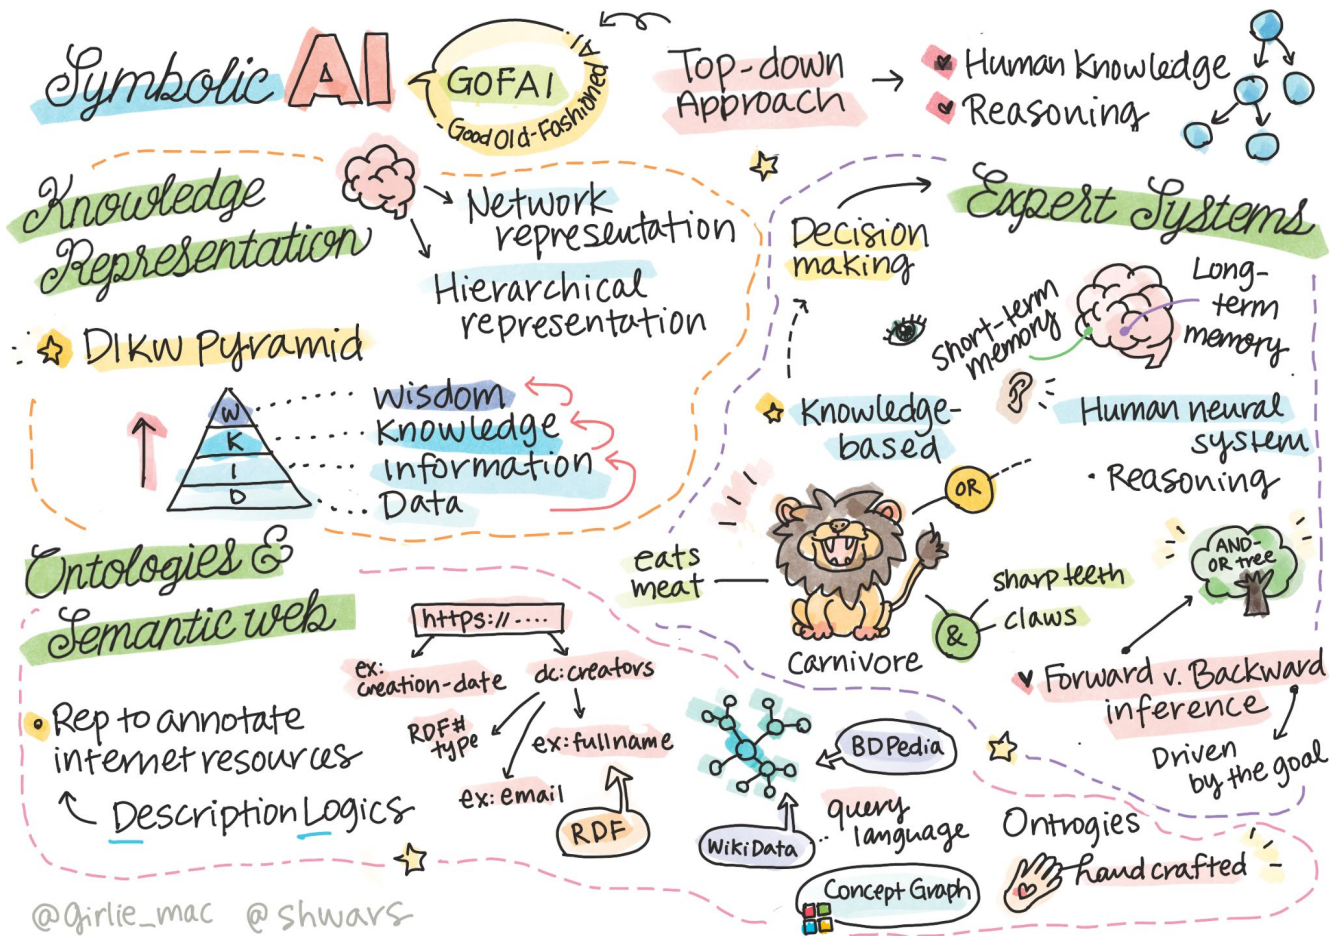 Symbolic AI
GOFAI
Good Old-Fashioned AI.
Top-down
Approach
Human Knowledge
Reasoning
Knowledge
Representation
Network
representation
Hierarchical
representation
DIKW Pyramid
W
K
I
D
Wisdom
Knowledge
information
Data
Expert Systems
Decision
making
short-term
memory
Long-
term
memory
Knowledge-
based
Human neural
system
• Reasoning
OR
eats
meat
sharp teeth
claws
&
carnivore
AND-
OR tree
Forward v. Backward
inference
Driven
by the goal
Ontologies &
Semantic web
https://....
ex:
creation-date
dc:creators
RDF#
type
ex:fullname
ex:email
RDF
Rep to annotate
internet resources
Description Logics
BDPedia
WikiData
query
language
Concept Graph
Ontrogies
handcrafted
@girlie_mac @shwars